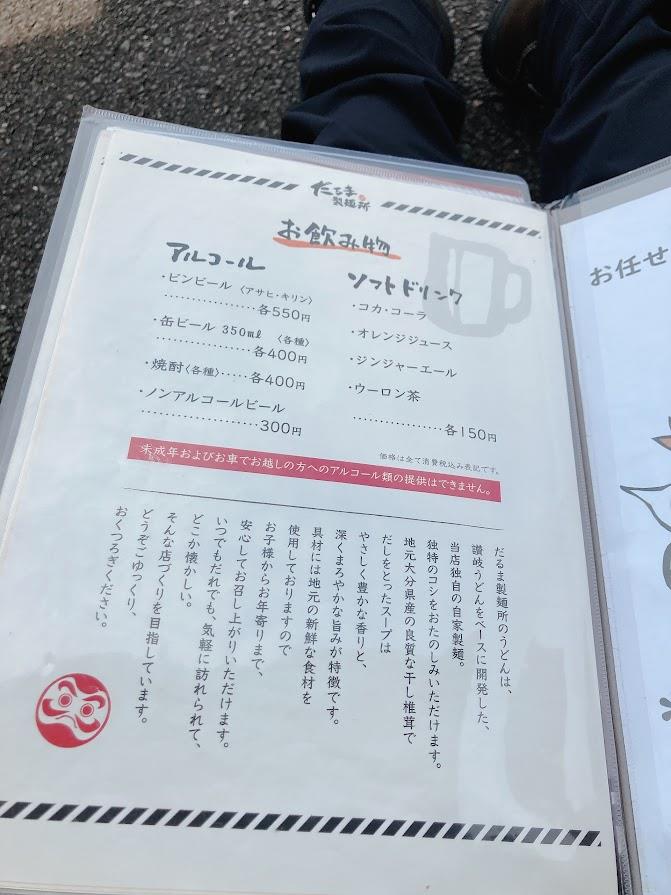 だるま
製麺所
お飲み物
アルコール
・ビンビール〈アサヒ・キリン〉
………………各550円
・缶ビール 350ml 〈各種〉
………………各400円
・焼酎〈各種〉……各400円
・ノンアルコールビール
…………………300円
ソフトドリンク
・コカ・コーラ
・オレンジジュース
・ジンジャーエール
・ウーロン茶
………………各150円
価格は全て消費税込み表記です。
未成年およびお車でお越しの方へのアルコール類の提供はできません。
だるま製麺所のうどんは、
讃岐うどんをベースに開発した、
当店独自の自家製麺。
独特のコシをおたのしみいただけます。
地元大分県産の良質な干し椎茸で
だしをとったスープは
やさしく豊かな香りと、
深くまろやかな旨みが特徴です。
具材には地元の新鮮な食材を
使用しておりますので
お子様からお年寄りまで、
安心してお召し上がりいただけます。
いつでもだれでも、気軽に訪れられて、
どこか懐かしい。
そんな店づくりを目指しています。
どうぞごゆっくり、
おくつろぎください。
お任せ